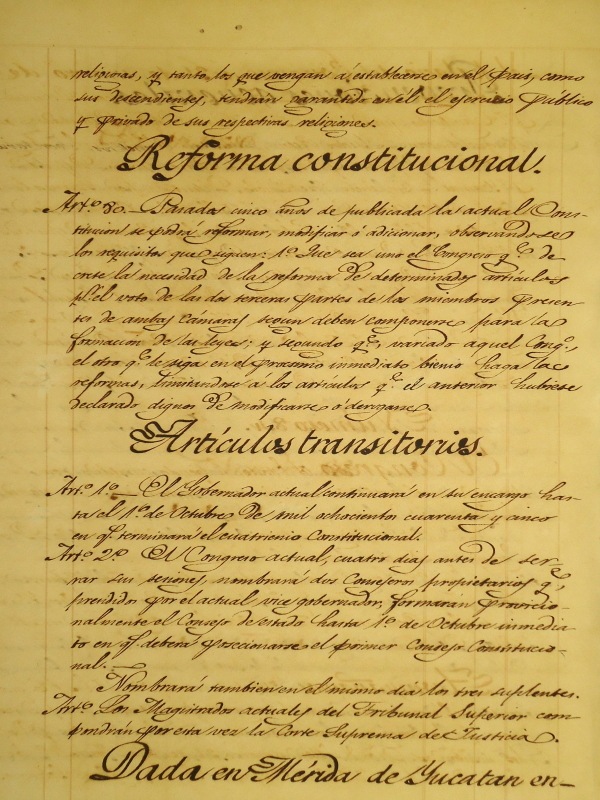 religiosas, y tanto los que vengan á establecerse en el pais, como
sus descendientes, tendrán garantido en él el ejercicio público
y privado de sus respectivas religiones.
Reforma constitucional.
Art.º 80. Pasados cinco años de publicada la actual Cons-
titucion se podrá reformar, modificar ó adicionar, observandose
los requisitos que siguen: 1º Que sea uno el Congreso q.e de
crete la necesidad de la reforma de determinados artículos
pr. el voto de las dos terceras partes de los miembros presen
tes de ambas cámaras segun deben componerse para la
formacion de las leyes; y segundo q.e, variado aquel Cong.º
el otro q.e le siga en el procsimo inmediato bienio haga las
reformas, limitandose á los artículos q.e el anterior hubiese
declarado dignos de modificarse ó derogarse.
Artículos transitorios.
Art.º 1º El Gobernador actual continuará en su encargo has-
ta el 1º de Octubre de mil ochocientos cuarenta y cinco
en q.e terminará el cuatrienio Constitucional.
Art.º 2º El Congreso actual, cuatro dias antes de cer-
rar sus sesiones, nombrará dos Consejeros propietarios q.e
precididos por el actual vice gobernador, formaran provicio-
nalmente el Consejo de estado hasta 1º de Octubre inmedia
to en q.e deberá posecionarse el primer Consejo Constitucio-
nal.
Nombrará tambien en el mismo dia los tres suplentes.
Art.º Los Magistrados actuales del Tribunal Superior com
pondrán por esta vez la Corte Suprema de Justicia.
Dada en Mérida de Yucatan en-